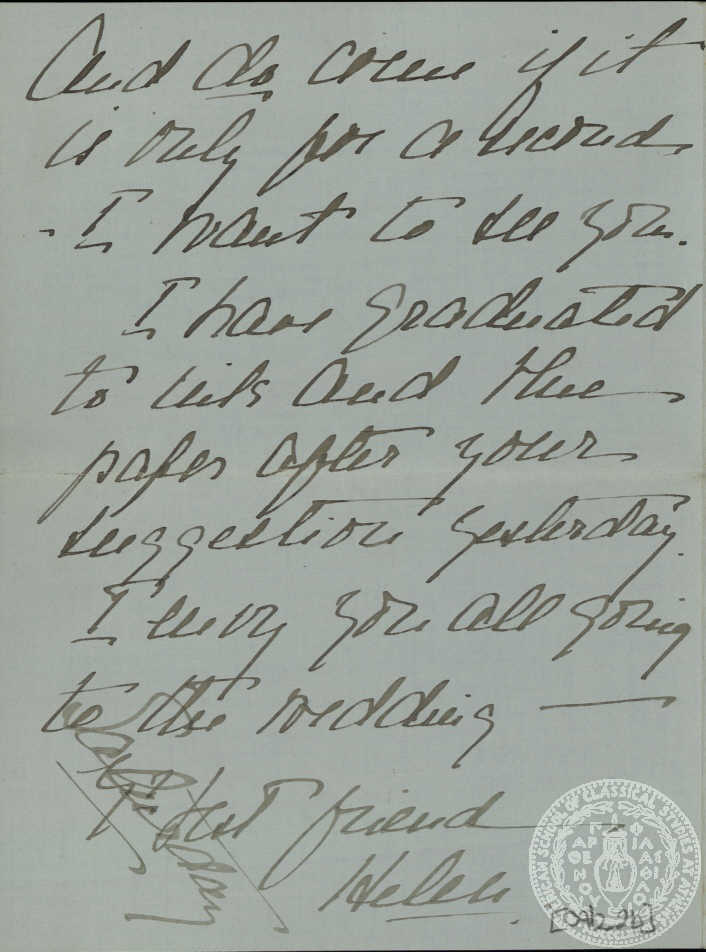 And do come if it
is only for a second
- I want to see you.
I have graduated
to ink and the
paper after your
suggestion yesterday.
I envy you all going
to the wedding —
best friend —
Helen
AMERICAN SCHOOL OF CLASSICAL STUDIES AT ATHENS
ΠΑΡΘΕΝΟΥ ΦΙΛΑΣ ΦΙΛΟΙ